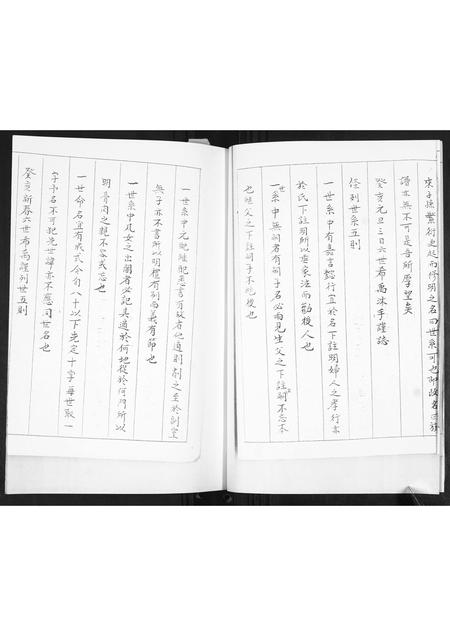 來子孫繁衍迭起而修明之名曰世系可也即改名曰族
譜亦無不可是吾所厚望矣
癸亥元旦三日六世希禹沐手謹誌
條列世系五則
一世系中有嘉言懿行宜於名下註明婦人之孝行亦
於氏下註明所以垂家法而勸後人也
一世系中無嗣者有嗣子名必兩見生父之下註嗣不忘本
也繼父之下註嗣子不死後也
一世系中尤
無子亦不書所以明禮有別而義有節也
一世系中凡女之出閣者必記其適於何地從於何門所以
明骨肉之親不容或忘也
一世命名宜有成式今自八十以下先定十字每世取一
字字名不可犯先世諱亦不應同世名也
癸亥新春六世希禹謹列世五則